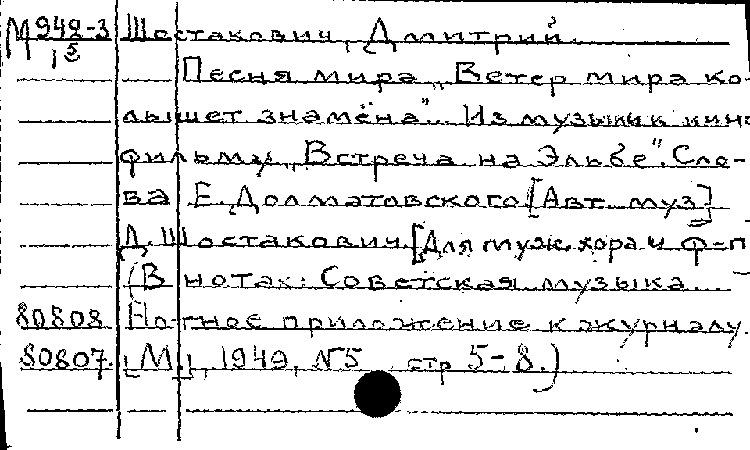 М 949-3 Шостакович, Дмитрий.
15
Песня мира „Ветер мира ко-
лышет знамёна"... Из музыки к кино-
фильму „Встреча на Эльбе". Сло-
ва Е. Долматовского [Авт. муз]
Д. Шостакович. [Для муж. хора и ф-п
(В нотах: Советская музыка...
80808 Нотное приложение к журналу.
80807. [М.], 1949, №5 стр 5-8.)